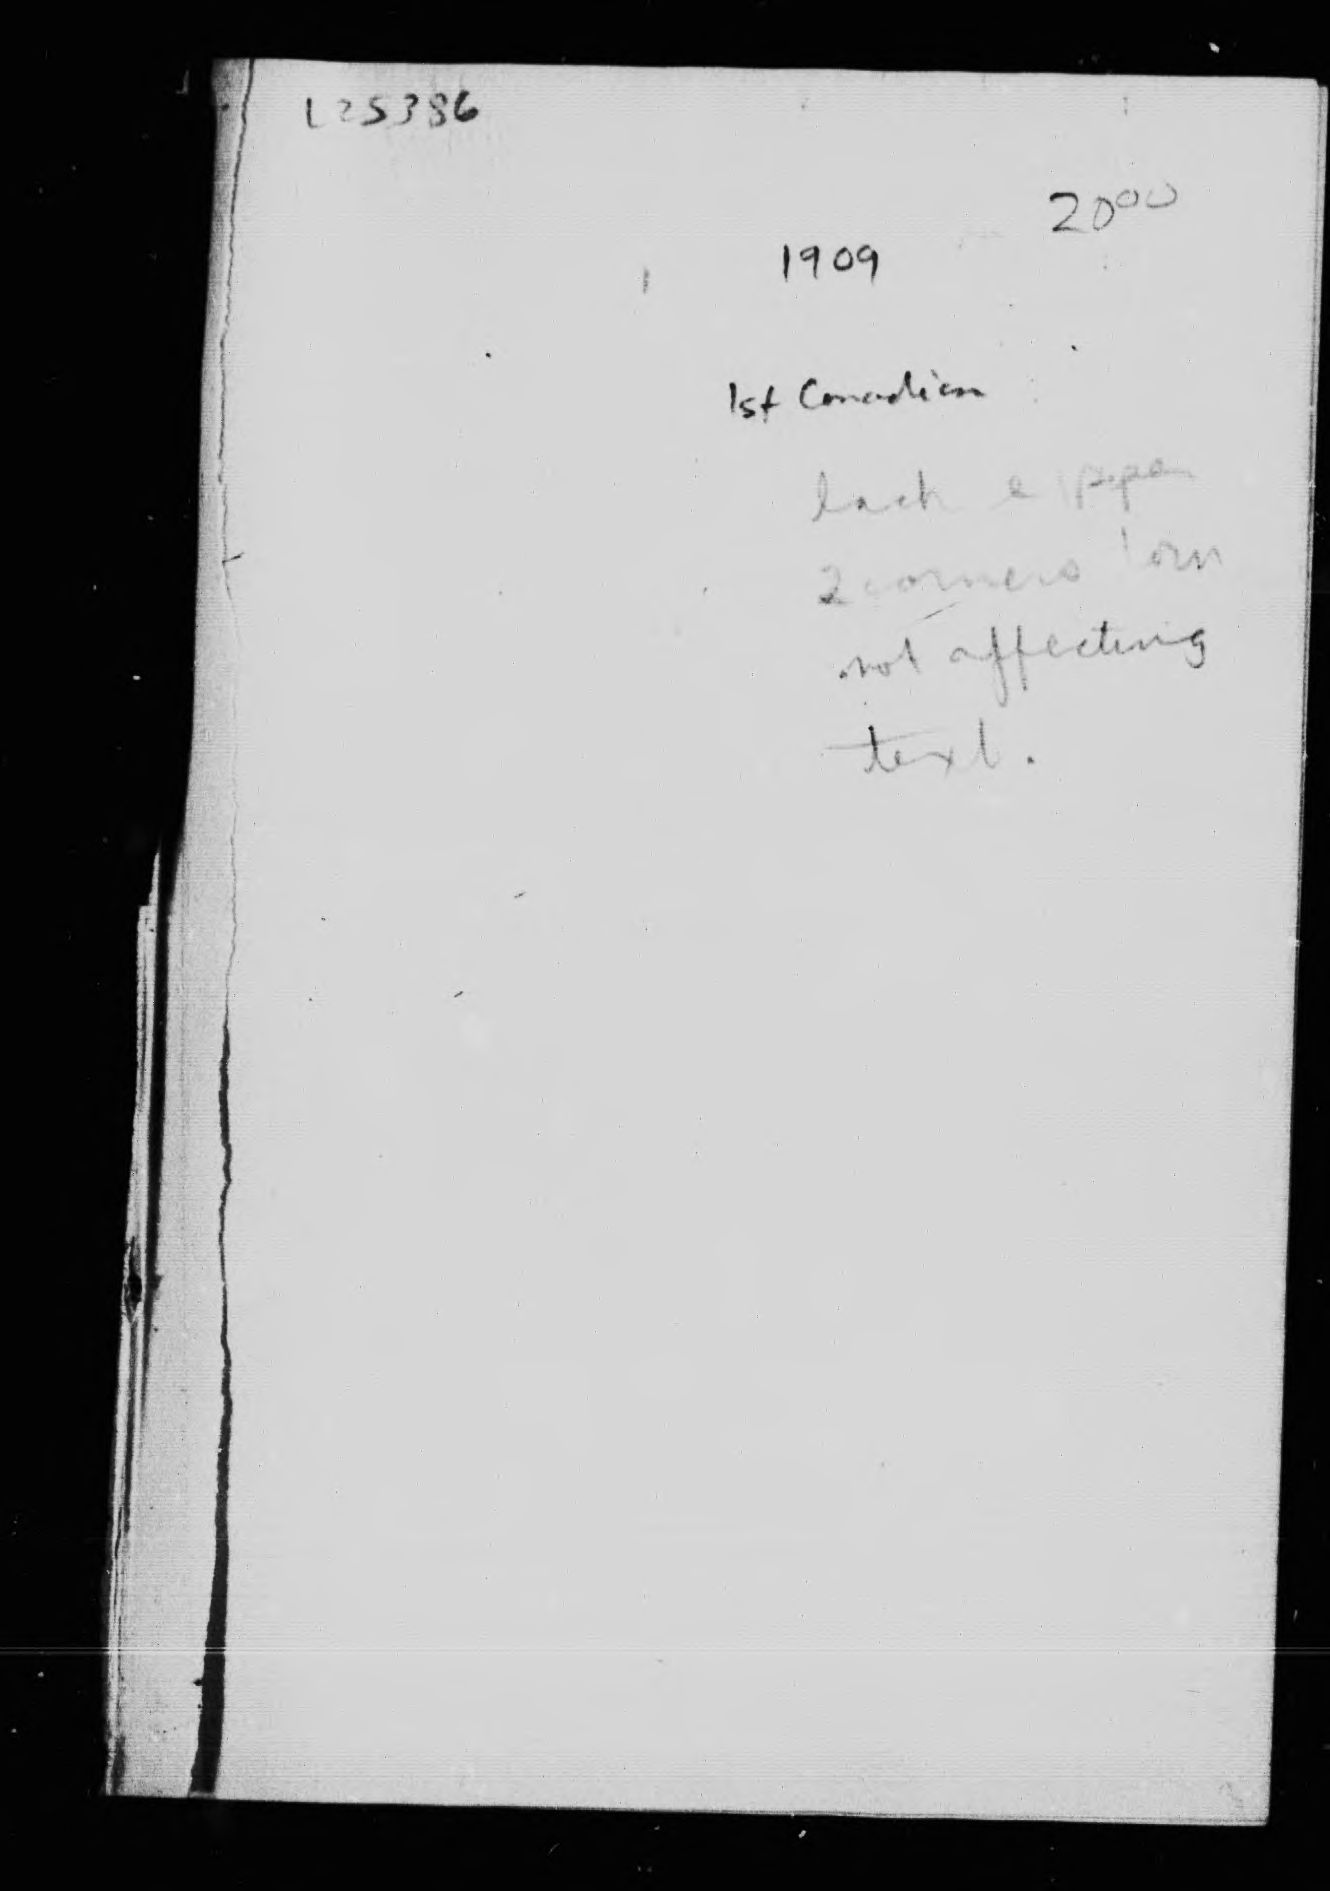 L25386
20⁰⁰
1909
1st Canadian
lack e
2 corners torn
not affecting
text.